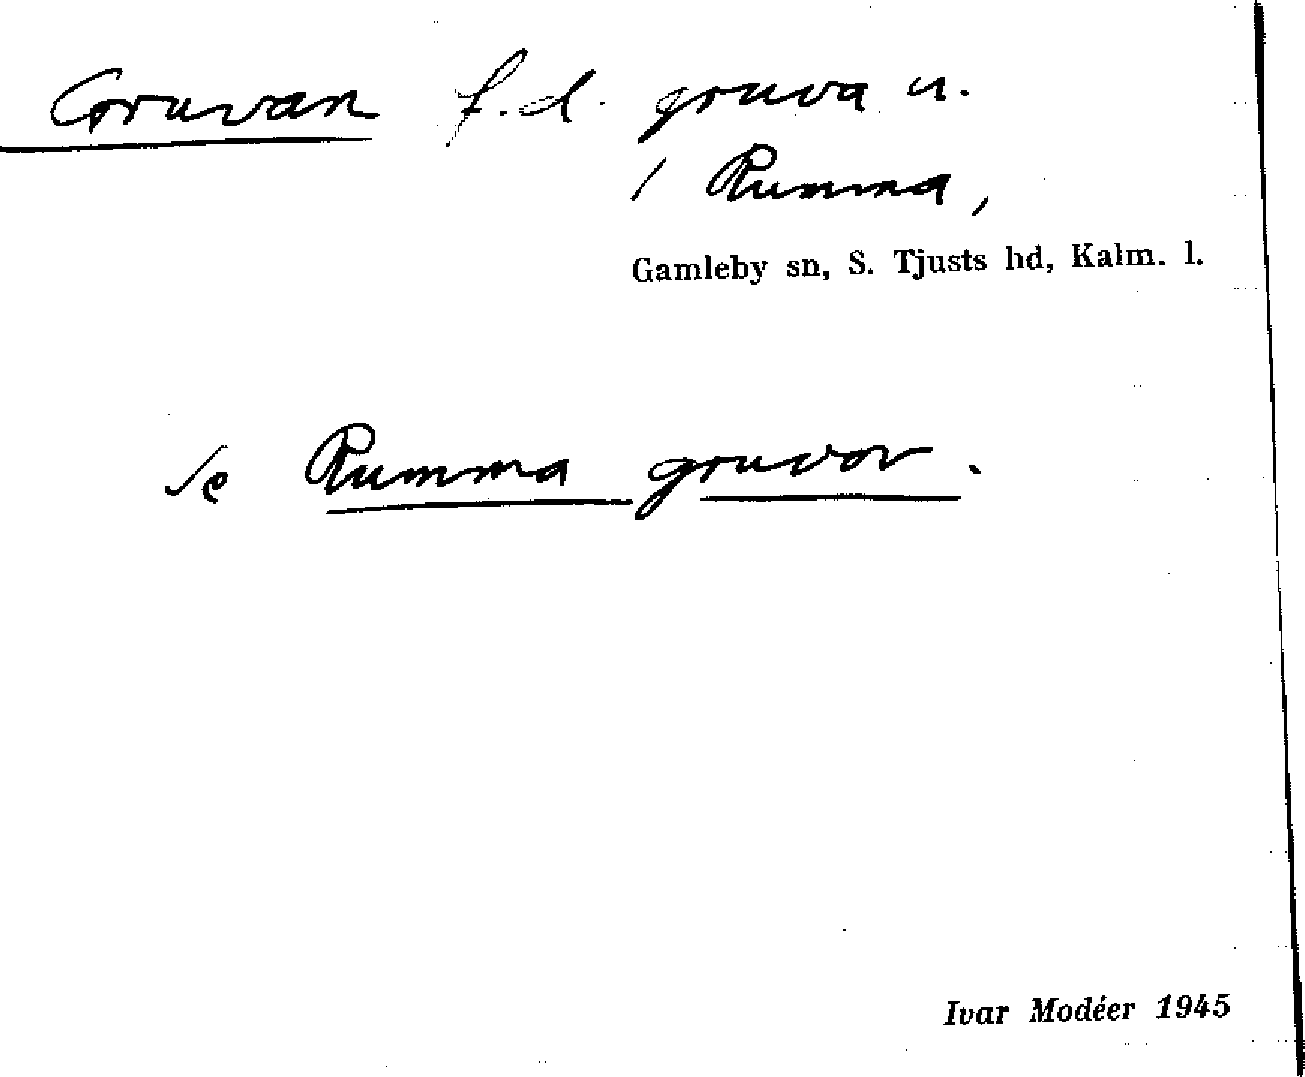 Gruvan f.d. gruva u.
/ Rumma,
Gamleby sn, S. Tjusts hd, Kalm. l.
se Rumma gruvor.
Ivar Modéer 1945